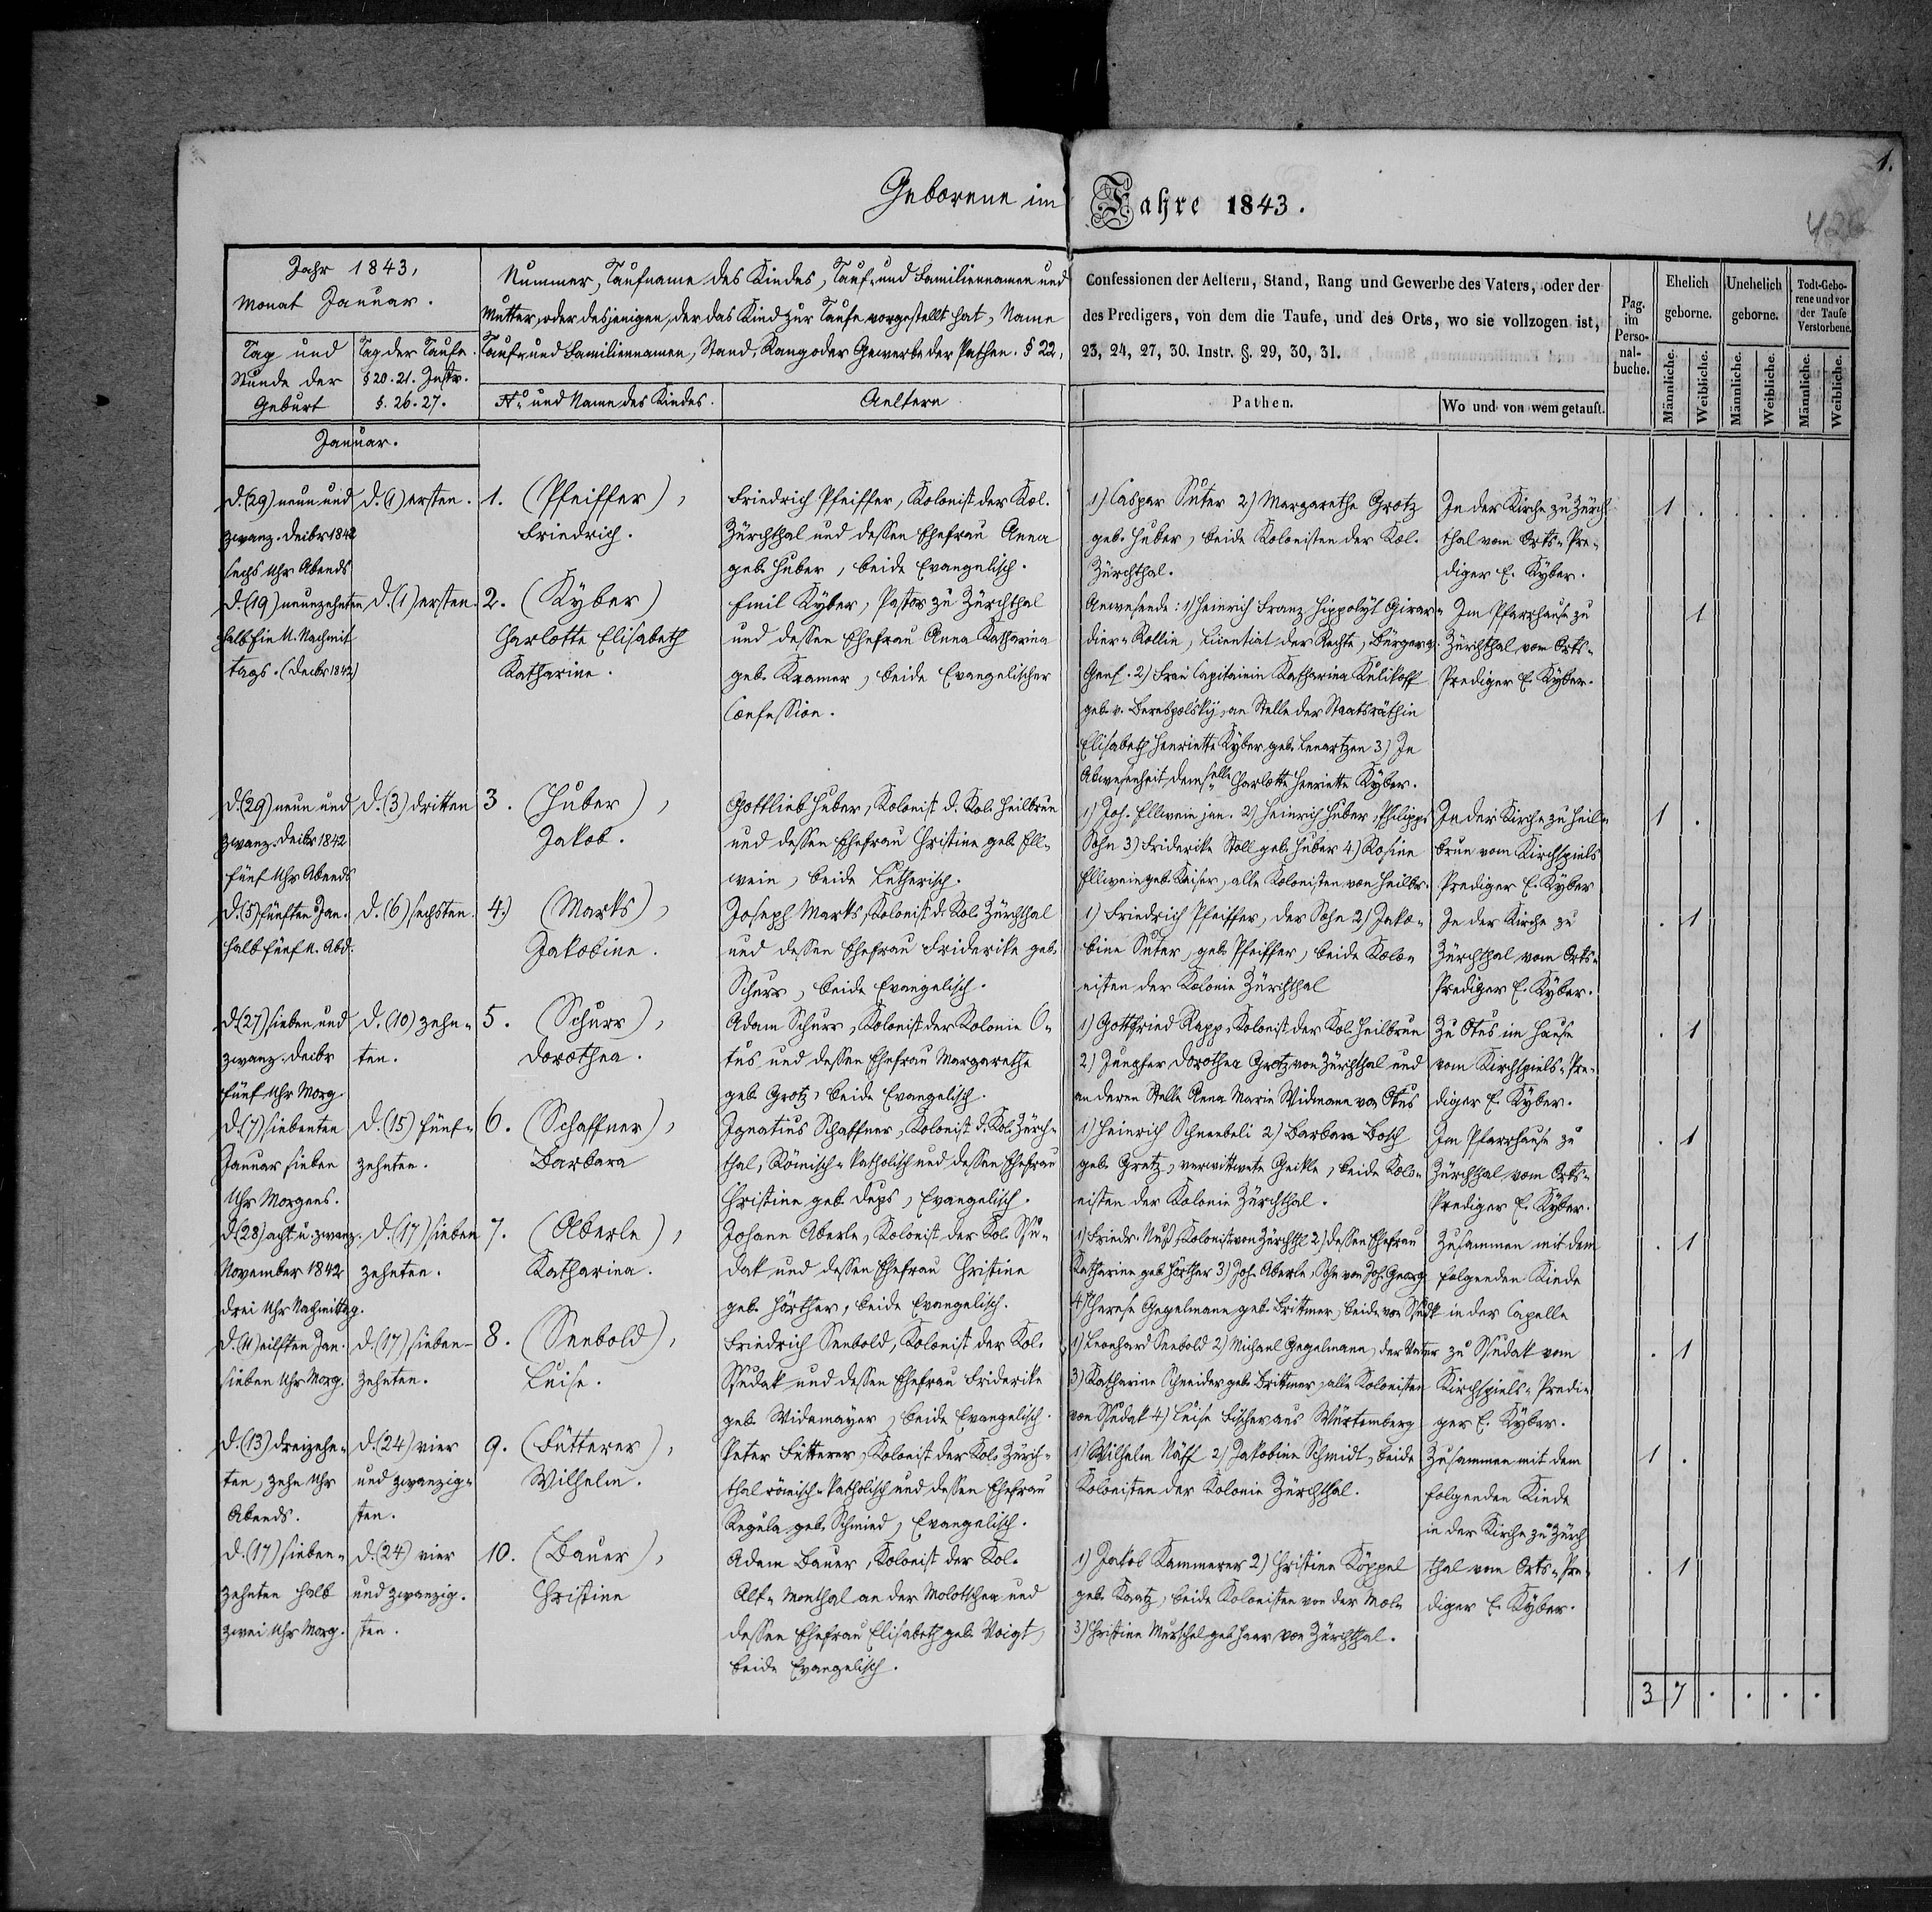 1.
Geborene im Jahre 1843.
Jahr 1843,
Monat Januar.
Tag und
Stunde der
Geburt
Tag der Taufe.
§ 20. 21. Instr.
§. 26. 27.
Nummer, Taufname des Kindes, Tauf- und Familiennamen und
Mutter, oder desjenigen, der das Kind zur Taufe vorgestellt hat, Name
Tauf- und Familiennamen, Stand, Rang oder Gewerbe der Pathen. § 22,
No und Name des Kindes.
Aeltern
Confessionen der Aeltern, Stand, Rang und Gewerbe des Vaters, oder der
des Predigers, von dem die Taufe, und des Orts, wo sie vollzogen ist,
23, 24, 27, 30. Instr. §. 29, 30, 31.
Pathen.
Wo und von wem getauft.
Pag.
im
Perso-
nal-
buche.
Ehelich
geborne.
Unehelich
geborne.
Todt-Gebo-
rene und vor
der Taufe
Verstorbene.
Männliche.
Weibliche.
Männliche.
Weibliche.
Männliche.
Weibliche.
Januar.
d. (29) neun und
zwanz. Decbr 1842
sechs Uhr Abends
d. (1) ersten.
1. (Pfeiffer),
Friedrich.
Friedrich Pfeiffer, Kolonist der Kol.
Zürchthal und dessen Ehefrau Anna
geb. Huber, beide Evangelisch.
1) Caspar Suter 2) Margarethe Grotz
geb. Huber, beide Kolonisten der Kol.
Zürchthal.
In der Kirche zu Zürch
thal vom Orts-Pre-
diger E. Kyber.
1 . . . . .
d. (19) neunzehnten
halb ein U. Nachmit
tags. (Decbr 1842)
d. (1) ersten.
2. (Kyber)
Charlotte Elisabeth
Katharine.
Emil Kyber, Pastor zu Zürchthal
und dessen Ehefrau Anna Katharina
geb. Kramer, beide Evangelischer
Confession.
Anwesende: 1) Heinrich Franz Hippolyt Girar-
dier-Rollin, Licentiat der Rechte, Bürger v.
Genf. 2) Frau Capitainin Katharina Kulikoff
geb. v. Berespolskij, an Stelle der Staatsräthin
Elisabeth Henriette Kyber geb. Lenartzen 3) In
Abwesenheit, demselle Charlotte Henriette Kyber.
Im Pfarrhause zu
Zürchthal vom Orts-
Prediger E. Kyber.
1
d. (29) neun und
zwanz. Decbr 1842
fünf Uhr Abends
d. (3) dritten
3. (Huber),
Jakob.
Gottlieb Huber, Kolonist d. Kol. Heilbrun
und dessen Ehefrau Christine geb. Ell-
wein, beide Lutherisch.
1) Joh. Ellwein jun. 2) Heinrich Huber, Philipps
Sohn 3) Friderike Stoll geb. Huber 4) Rosine
Ellwein geb. Kaiser, alle Kolonisten von Heilbr.
In der Kirche zu Heil-
brun vom Kirchspiels
Prediger E. Kyber
1 .
d. (5) fünften Jan.
halb fünf U. Abd.
d. (6) sechsten.
4.) (Marks),
Jakobine.
Joseph Marks, Kolonist d. Kol. Zürchthal
und dessen Ehefrau Friderike geb.
Schurr, beide Evangelisch.
1) Friedrich Pfeiffer, der Sohn 2) Jako-
bine Suter, geb. Pfeiffer, beide Kolo-
nisten der Kolonie Zürchthal
In der Kirche zu
Zürchthal vom Orts-
Prediger E. Kyber.
. 1
d. (27) sieben und
zwanz. Decbr
fünf Uhr Morg.
d. (10) zehn-
ten.
5. (Schurr),
Dorothea.
Adam Schurr, Kolonist der Kolonie O-
tus und dessen Ehefrau Margarethe
geb. Grotz, beide Evangelisch.
1) Gottfried Rapp, Kolonist der Kol. Heilbrun
2) Jungfer Dorothea Grotz von Zürchthal und
an deren Stelle Anna Marie Widmann von Otus
Zu Otus im Hause
vom Kirchspiels-Pre-
diger E. Kyber.
. 1
d. (7) siebenten
Januar sieben
Uhr Morgens.
d. (15) fünf-
zehnten.
6. (Schaffner),
Barbara
Ignatius Schaffner, Kolonist d. Kol. Zürch-
thal, Römisch-katholisch und dessen Ehefrau
Christine geb. Deps, Evangelisch.
1) Heinrich Schneebeli 2) Barbara Bosch
geb. Gretz, verwittwete Geikle, beide Kolo-
nisten der Kolonie Zürchthal.
Im Pfarrhause zu
Zürchthal vom Orts-
Prediger E. Kyber.
. 1
d. (28) acht u. zwanz.
November 1842
drei Uhr Nachmittag.
d. (17) sieben
zehnten.
7. (Aberle),
Katharina.
Johann Aberle, Kolonist der Kol. Ssu-
dak und dessen Ehefrau Christine
geb. Hörther, beide Evangelisch.
1) Friedr. Nuß, Kolonist von Zürchthl 2) dessen Ehefrau
Katharine geb. Hörther 3) Joh. Aberle, Sohn von Joh. Georg
4) Therese Gegelmann geb. Brittmer, beide von Ssudk
Zusammen mit dem
folgenden Kinde
in der Capelle
. 1
d. (11) eilften Jan.
sieben Uhr Morg.
d. (17) sieben-
zehnten.
8. (Seebold),
Luise.
Friedrich Seebold, Kolonist der Kol.
Ssudak und dessen Ehefrau Friderike
geb. Widemayer, beide Evangelisch.
1) Leonhard Seebold 2) Michael Gegelmann, der Vater
3) Katharine Schneider geb. Brittmer, alle Kolonisten
von Ssudak 4) Luise Fischer aus Würtemberg
zu Ssudak vom
Kirchspiels-Predi-
ger E. Kyber.
. 1
d. (13) dreizehn-
ten, zehn Uhr
Abends.
d. (24) vier
und zwanzig-
sten.
9. (Fütterer),
Wilhelm.
Peter Fütterer, Kolonist der Kol. Zürch-
thal römisch-katholisch und dessen Ehefrau
Regula geb. Schmied, Evangelisch.
1) Wilhelm Näff 2) Jakobine Schmidt, beide
Kolonisten der Kolonie Zürchthal.
Zusammen mit dem
folgenden Kinde
in der Kirche zu Zürch
1 .
d. (17) sieben-
zehnten halb
zwei Uhr Morg.
d. (24) vier
und zwanzig.
sten.
10. (Bauer),
Christine
Adam Bauer, Kolonist der Kol.
Alt-Monthal an der Molotschna und
dessen Ehefrau Elisabeth geb. Voigt,
beide Evangelisch.
1) Jakob Kammerer 2) Christine Köppel
geb. Kratz, beide Kolonisten von der Mol-
3) Christine Murschel geb. Haar, von Zürchthal.
thal vom Orts-Pre-
diger E. Kyber.
. 1
3 7 . . . .